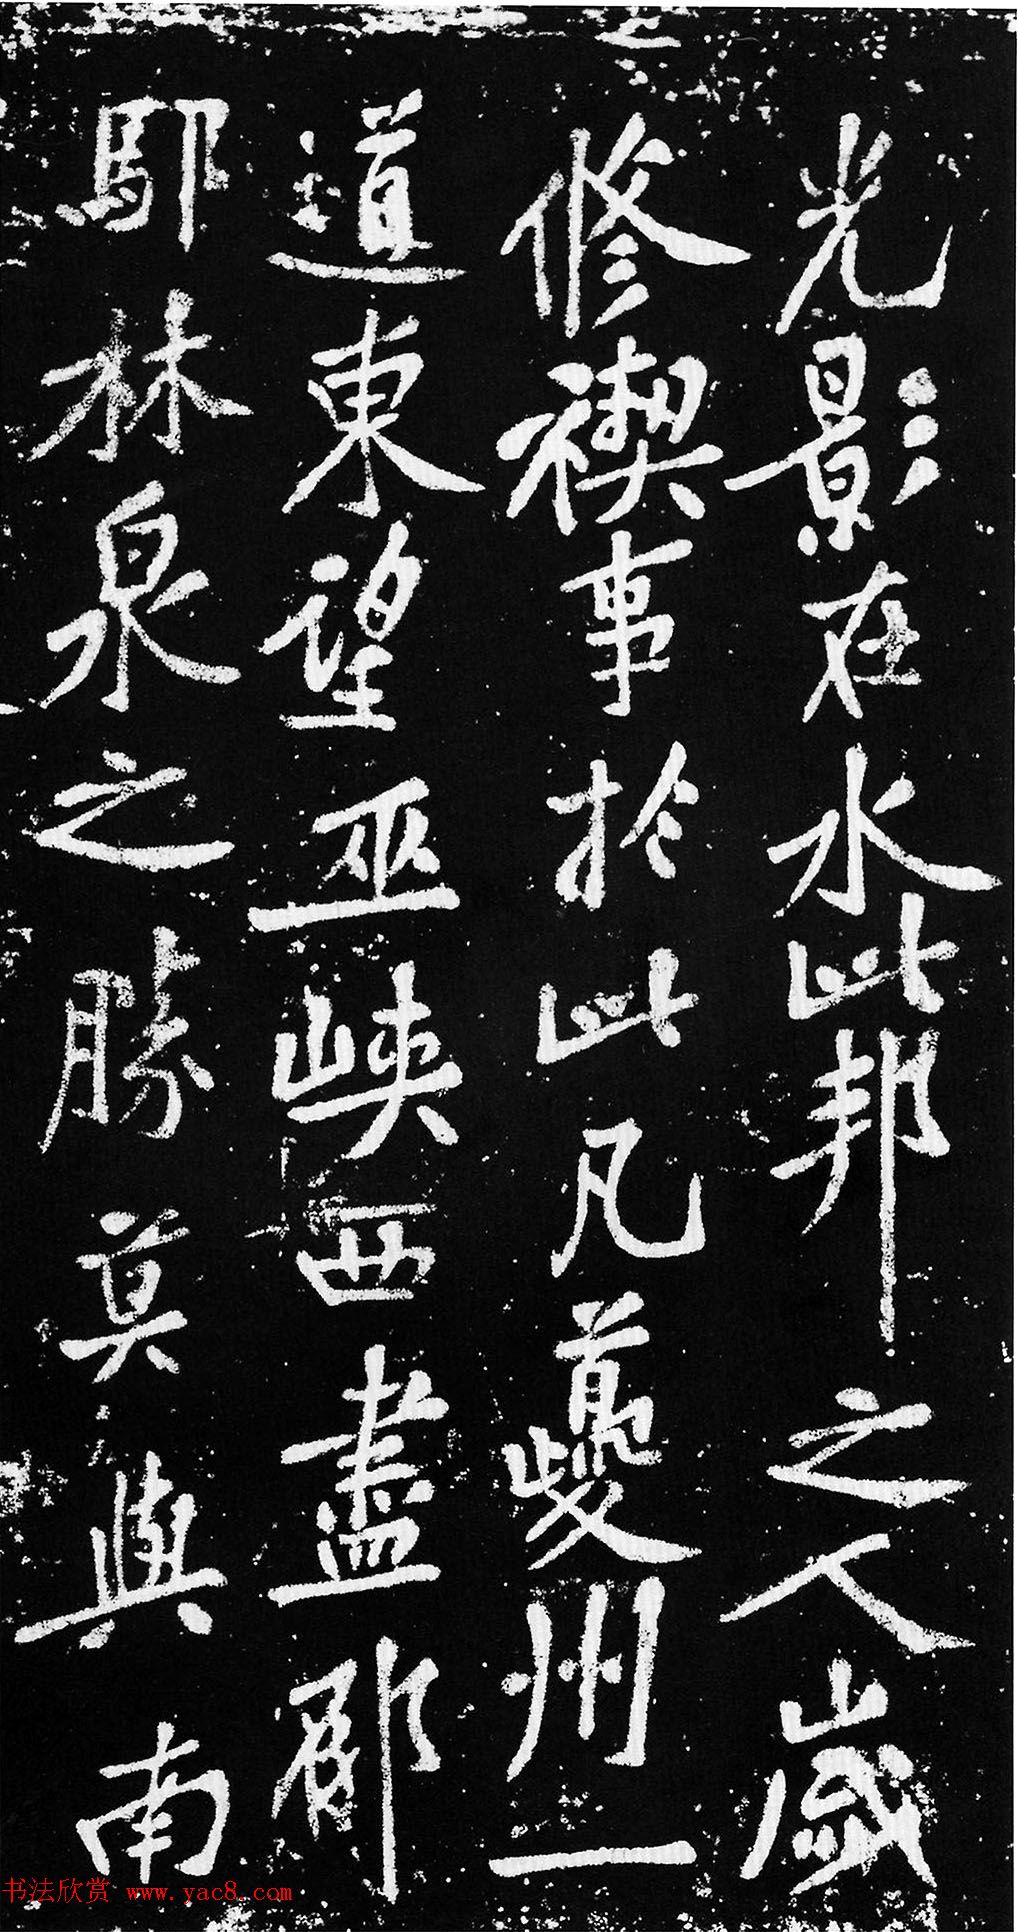 光影在水此邦之人歲
修禊事於此凡夔州一
道東望巫峽西盡郁
鄢林泉之勝莫與南
书法欣赏 www.yac8.com